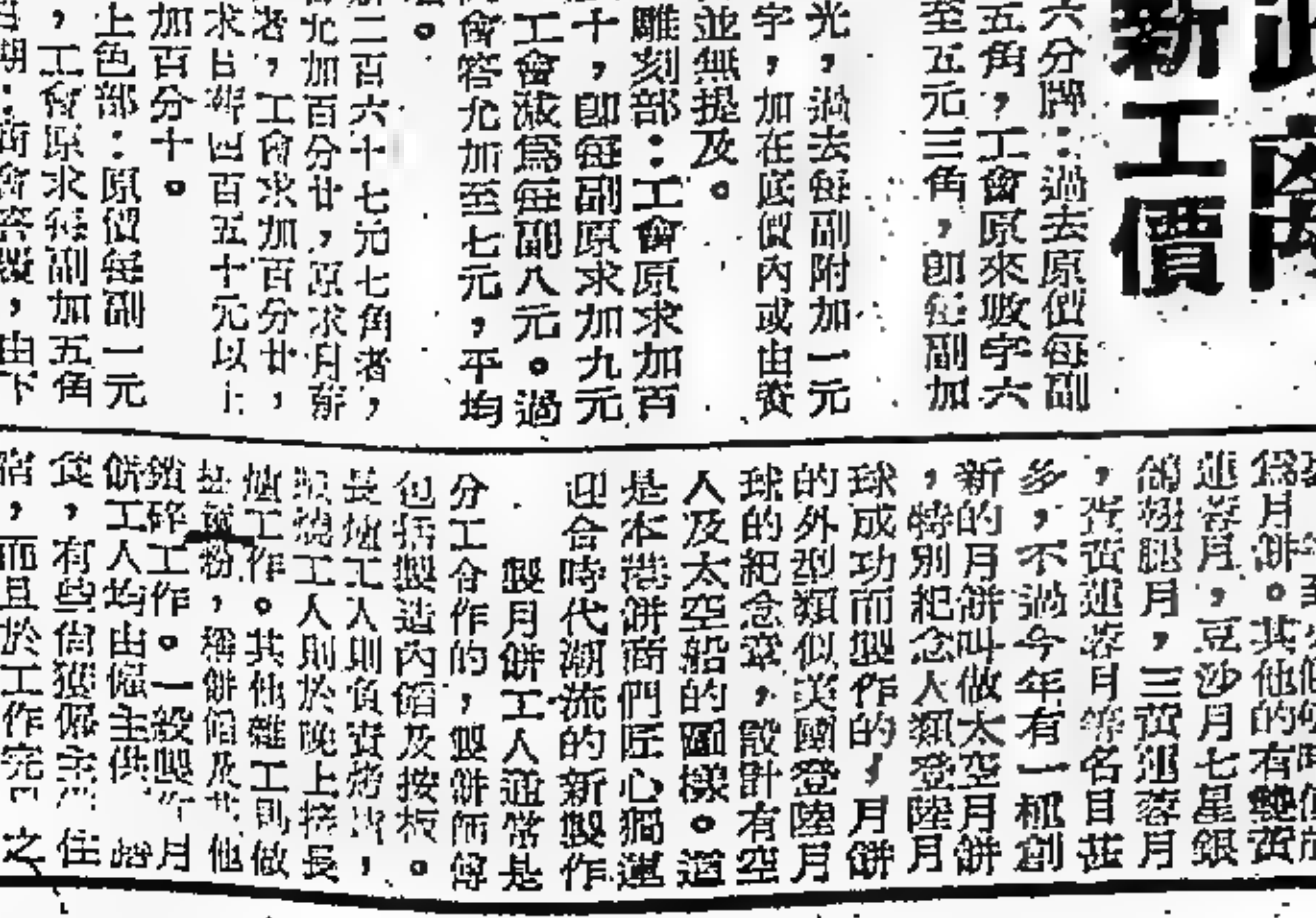 新工價
六分牌：過去原價每副
五角，工會原來收字六
至五元三角，即每副加
光，過去每副附加一元
字，加在底價內或由資
並無提及。
雕刻部：工會原求加百
十，即每副原求加九元
工會減爲每副八元。過
會答允加至七元，平均
二百六十七元七角者，
允加百分廿，原求月薪
者，工會求加百分廿，
求日薪四百五十元以上
加百分十。
上色部：原價每副一元
，工會原求每副加五角
，由下
爲月餅。其他的有雙黃
蓮蓉月，豆沙月七星銀
腿月，三黃蓮蓉月
，蛋黃蓮蓉月等名目甚
多，不過今年有一種創
新的月餅叫做太空月餅
，特別紀念人類登陸月
球成功而製作的，月餅
的外型類似美國登陸月
球的紀念章，設計有空
人及太空船的圖樣。這
是本港餅商們匠心獨運
迎合時代潮流的新製作
製月餅工人通常是
分工合作的，製餅師傅
包括製造內餡及按板。
長爐工人則負責
工人則於晚上接長
爐工作。其他雜工則做
粉，稱餅餡及其他
瑣碎工作。一般製作月
餅工人均由僱主供
食，有些尚獲僱主 住
宿，而且於工作完 之